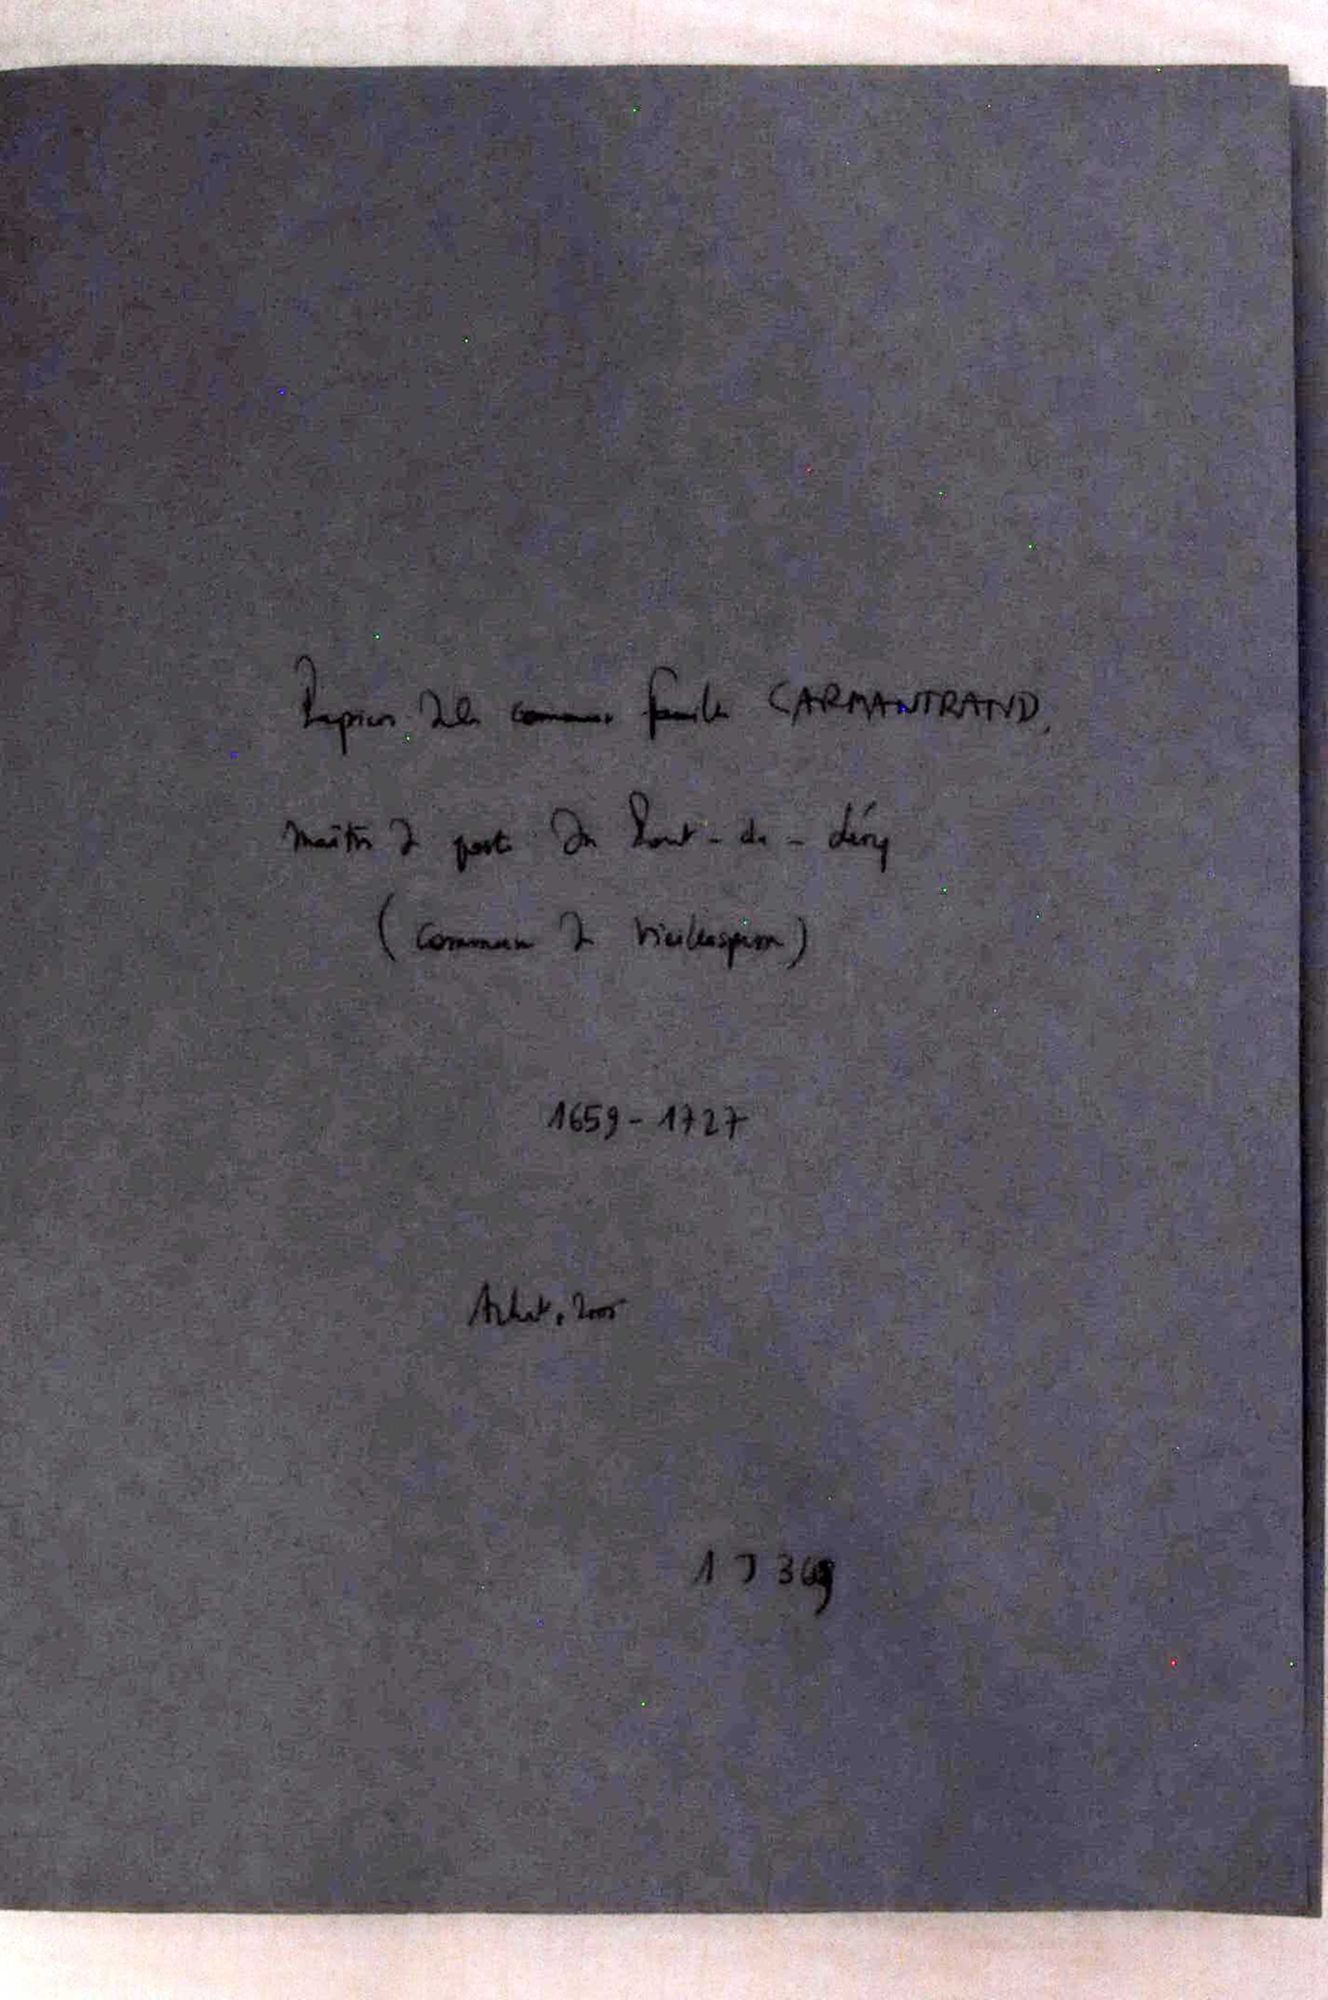 Papiers de la ~~commune~~ famille CARMANTRAND,
maître de poste du Pont-de-Léry
(commune de Vieillespesse)
1659-1727
Achat, 2005
1 J 369